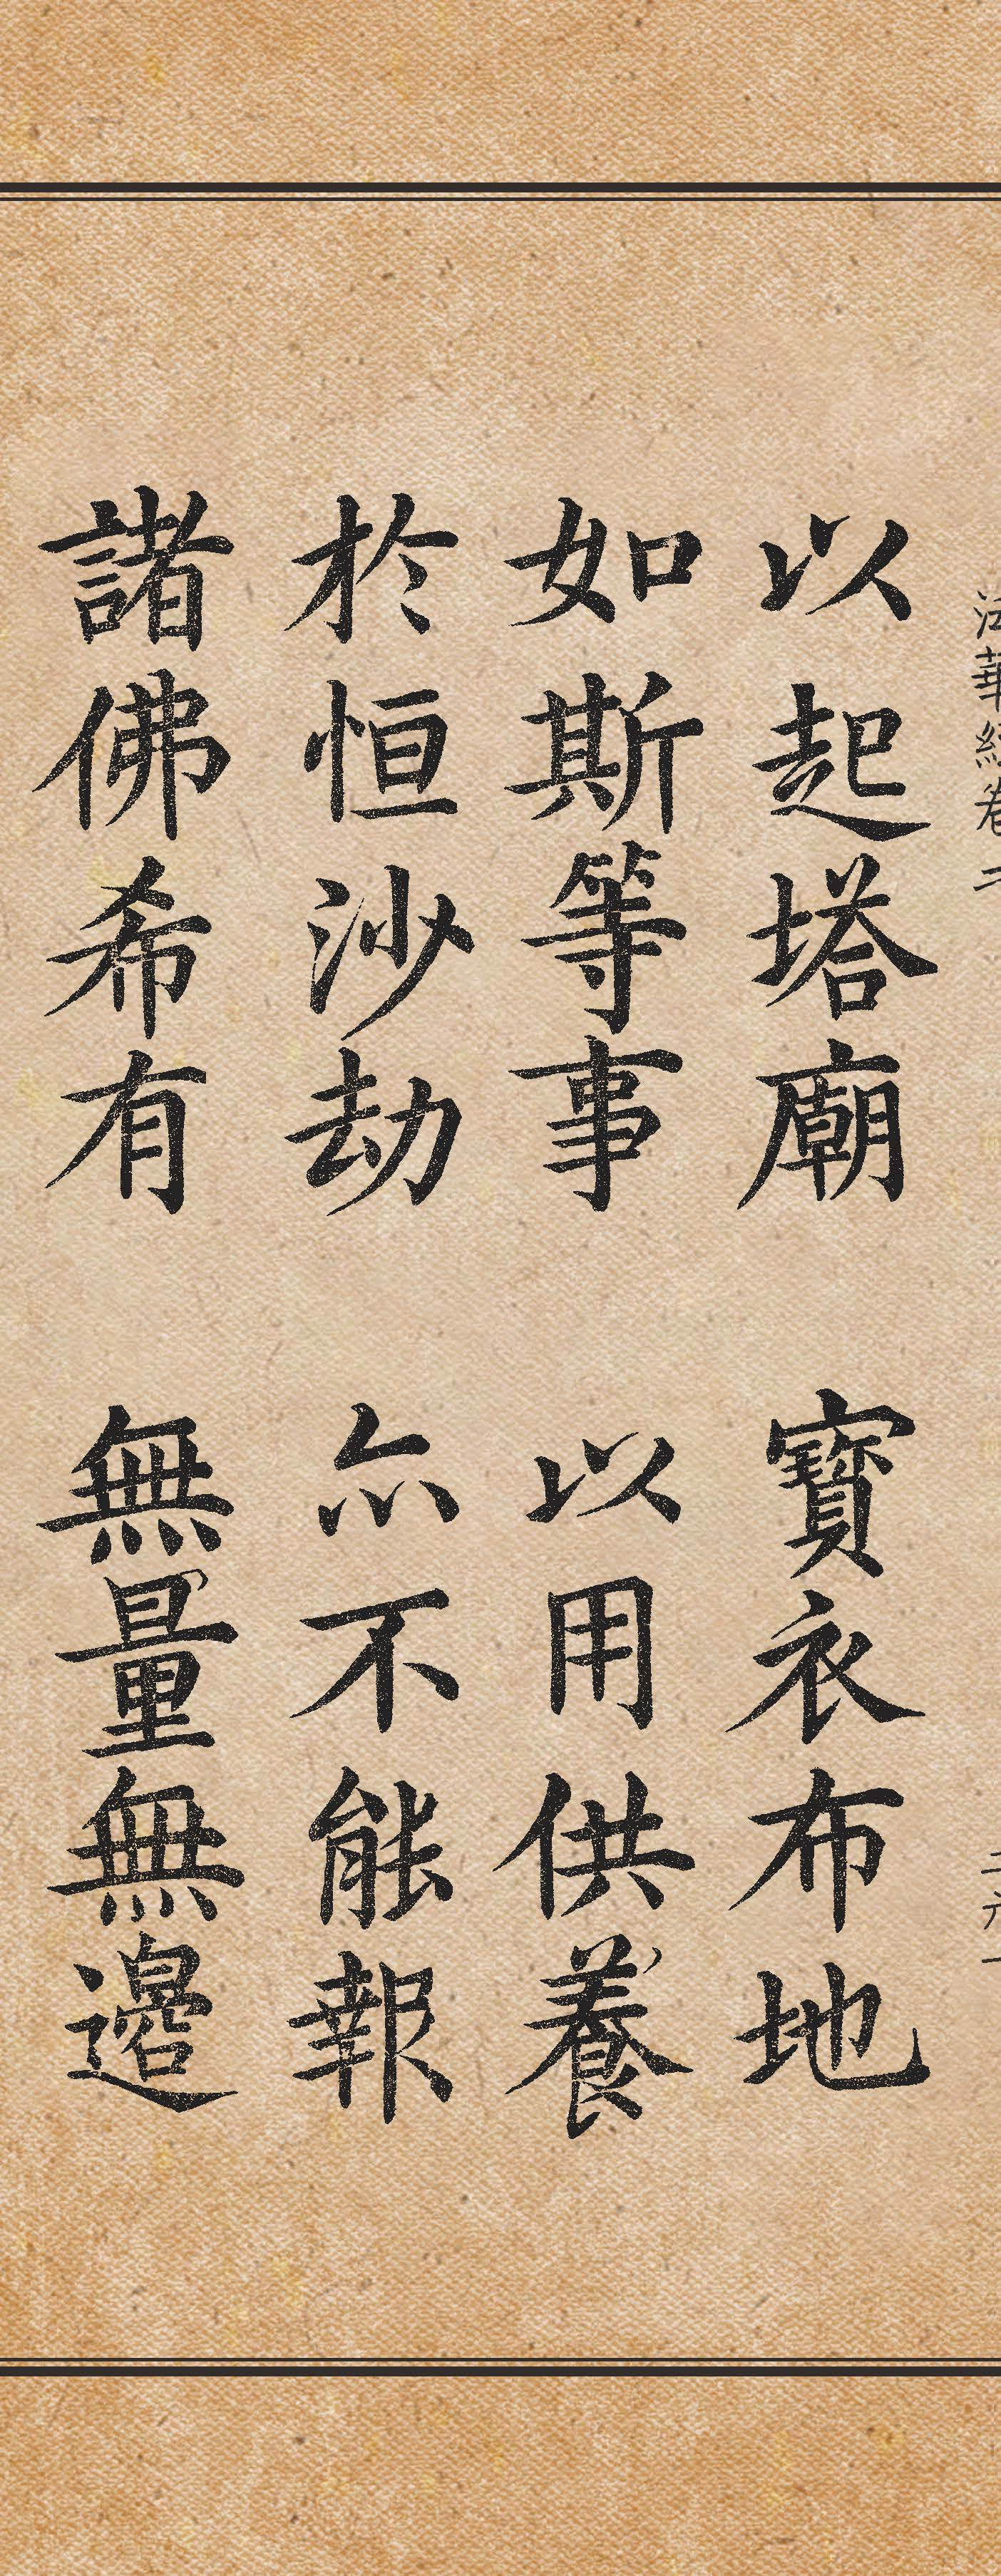 法華經卷二
以起塔廟 寶衣布地
如斯等事 以用供養
於恒沙劫 亦不能報
諸佛希有 無量無邊